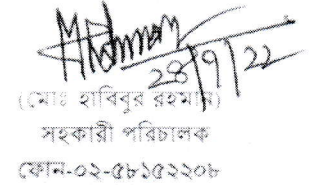 28/9/22
(মোঃ হাবিবুর রহমান)
সহকারী পরিচালক
ফোন-০২-৫৮১৫২২০৮